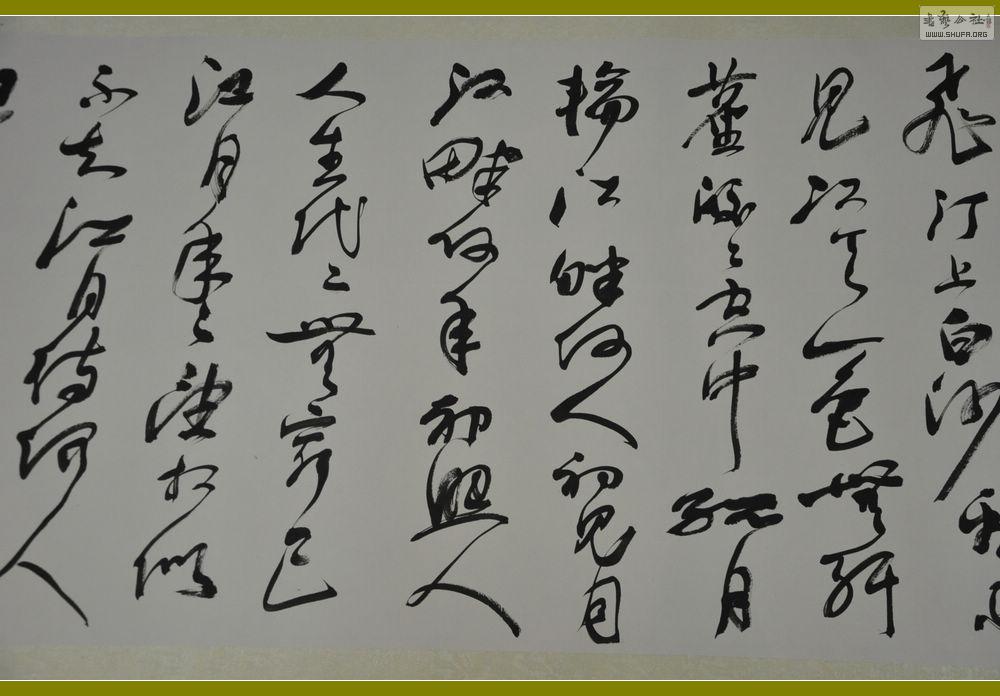 飛汀上白沙看不
見江天一色無纖
塵皎〻空中孤月
輪江畔何人初見月
江畔何年初照人
人生代〻無窮已
江月年〻望相似
不知江月待何人
書藝公社
WWW.SHUFA.ORG